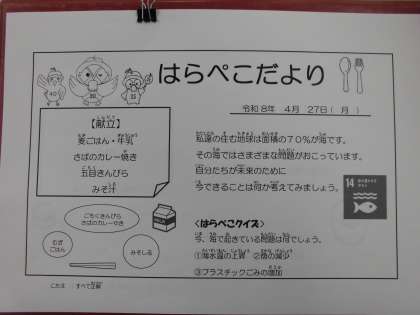 はらぺこだより
令和8年 4月 27日（月）
【献立】
麦ごはん・牛乳
さばのカレー焼き
五目きんぴら
みそ汁
私達の住む地球は面積の70％が海です。
その海ではさまざまな問題がおこっています。
自分たちが未来のために
今できることは何か考えてみましょう。
14
ごもくきんぴら
さばのカレーやき
むぎ
ごはん
みそしる
<はらぺこクイズ>
今、海で起きている問題は何でしょう。
①海水温の上昇 ②魚の減少
③プラスチックごみの増加
こたえ：すべて正解